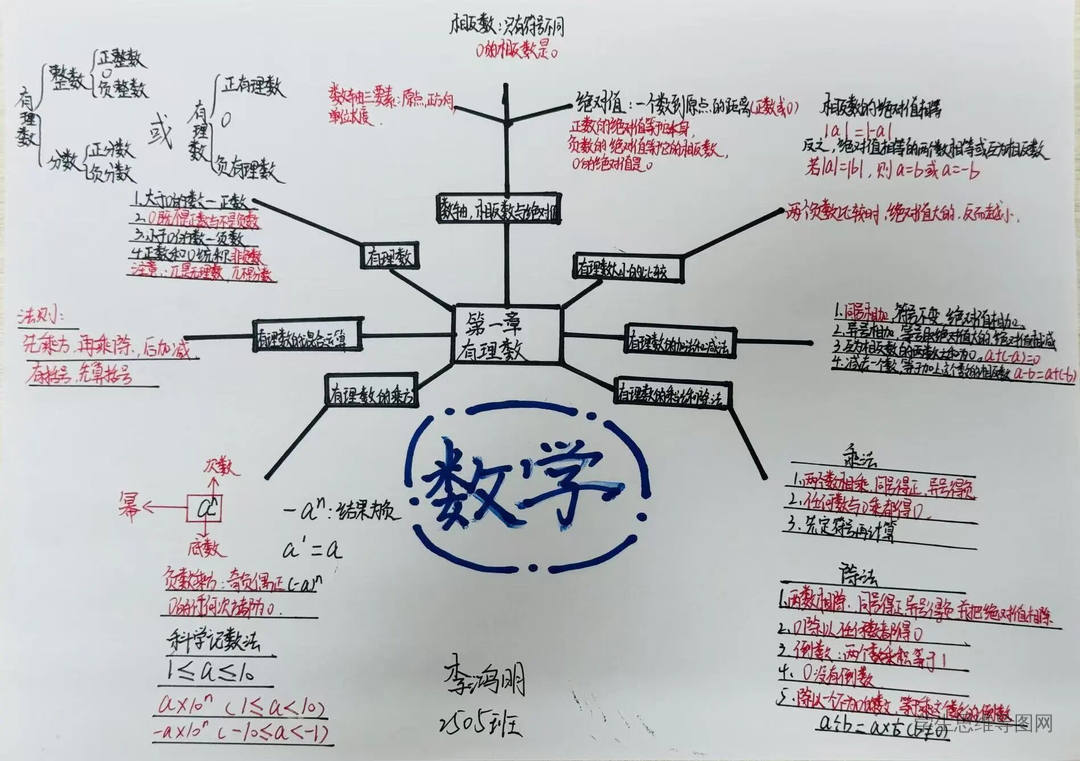 相反数：只有符号不同
0的相反数是0
数轴三要素：原点，正方向
单位长度
绝对值：一个数到原点的距离(正数或0)
正数的绝对值等于本身，
负数的绝对值等于它的相反数，
0的绝对值是0
相反数的绝对值相等
|a|=|-a|
反之，绝对值相等的两个数相等或互为相反数
若|a|=|b|，则a=b或a=-b
数轴，相反数与绝对值
有理数
整数
正整数
0
负整数
分数
正分数
负分数
或
有理数
正有理数
0
负有理数
1.大于0的数—正数
2.0既不是正数也不是负数
3.小于0的数—负数
4.正数和0统称非负数
注意：π是无理数，π不是分数
有理数
有理数大小的比较
两个负数比较时，绝对值大的，反而越小.
第一章
有理数
有理数的混合运算
法则：
先乘方，再乘除，后加减
有括号，先算括号
有理数的加法和减法
1.同号相加，符号不变，绝对值相加
2.异号相加，符号取绝对值大的，绝对值相减
3.互为相反数的两数之和为0，a+(-a)=0
4.减去一个数，等于加上这个数的相反数 a-b=a+(-b)
有理数的乘方
有理数的乘法和除法
数学
次数
幂
aⁿ
底数
-aⁿ：结果为负
a¹=a
负数乘方：奇负偶正(-a)ⁿ
0的任何次方都为0.
科学记数法
1≤a≤10
a×10ⁿ (1≤a<10)
-a×10ⁿ (-10≤a<-1)
乘法
1.两个数相乘，同号得正，异号得负
2.任何数与0乘都得0.
3.先定符号再计算
除法
1.两数相除，同号得正，异号得负，再把绝对值相除
2.0除以任何数都得0
3.倒数：两个数乘积等于1
4.0没有倒数
5.除以一个不为0的数，等于乘这个数的倒数
a÷b=a×(b≠0)
李鸿明
2505班
思维导图网